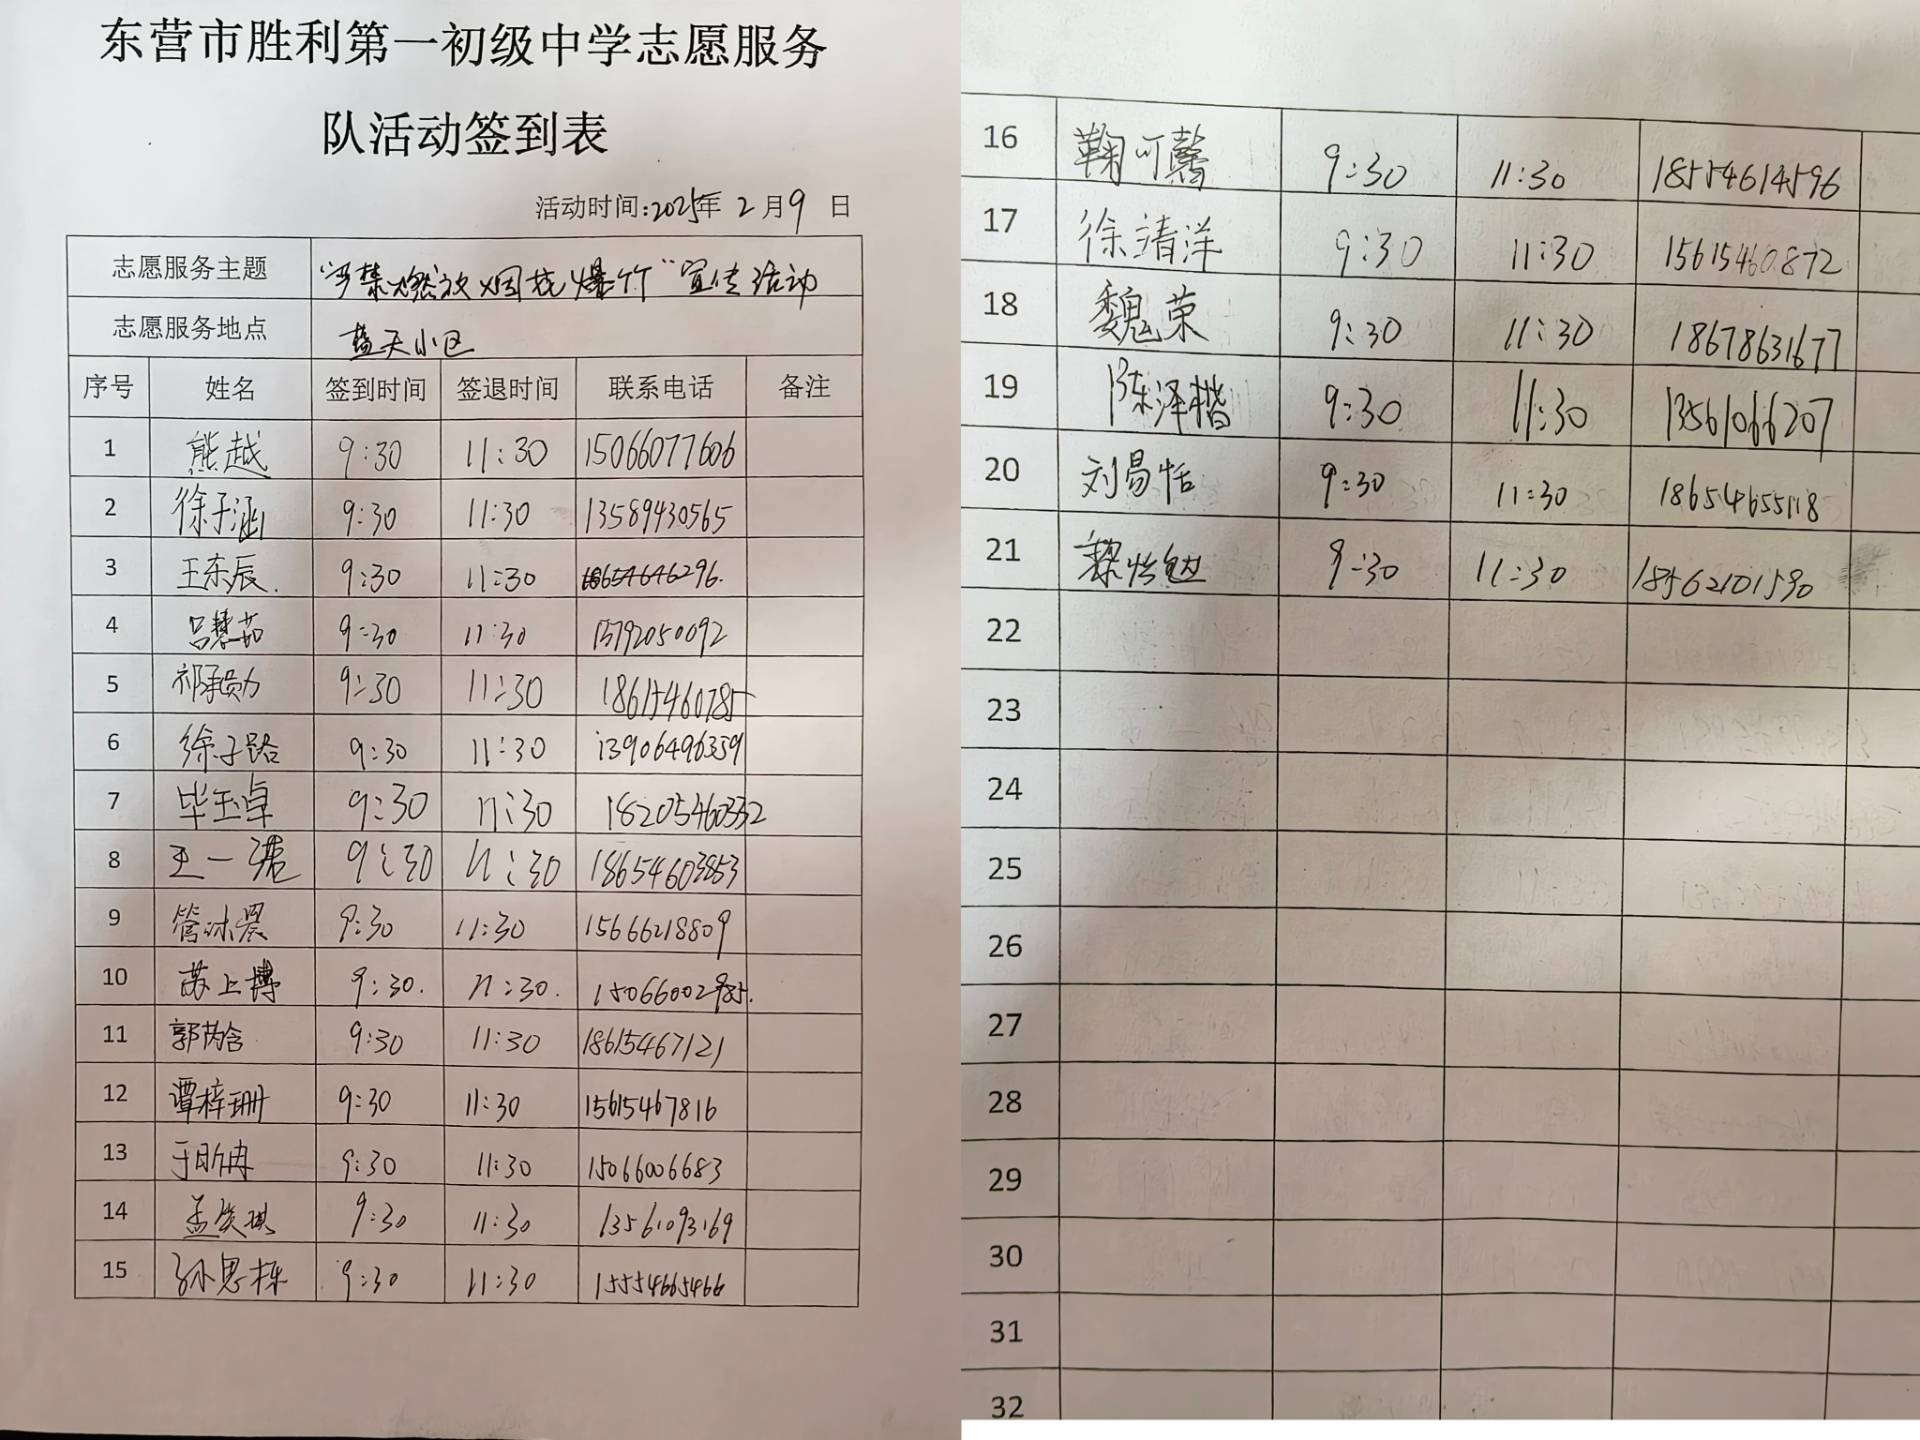 东营市胜利第一初级中学志愿服务
队活动签到表
活动时间:2025年 2 月 9 日
志愿服务主题 “严禁燃放烟花爆竹”宣传活动
志愿服务地点 蓝天小区
序号 姓名 签到时间 签退时间 联系电话 备注
1 熊越 9:30 11:30 15066077606
2 徐子涵 9:30 11:30 13589430565
3 王东辰 9:30 11:30 18654646296
4 吕慧茹 9:30 11:30 13792050092
5 祁承勋 9:30 11:30 18615460785
6 徐子路 9:30 11:30 13906496359
7 毕玉卓 9:30 11:30 18205460332
8 王一 9:30 11:30 18654603853
9 管冰 9:30 11:30 15666218809
10 苏上博 9:30 11:30 15066002985
11 郭芮含 9:30 11:30 18615467121
12 谭梓珊 9:30 11:30 15615467816
13 于昕冉 9:30 11:30 15066006683
14 孟 琪 9:30 11:30 13561093169
15 孙思栋 9:30 11:30 15554665466
16 鞠可馨 9:30 11:30 18554614596
17 徐清洋 9:30 11:30 15615460872
18 魏荣 9:30 11:30 18678631677
19 陈泽楷 9:30 11:30 13561066207
20 刘易恬 9:30 11:30 18654655118
21 黎怡 9:30 11:30 18562101590
22
23
24
25
26
27
28
29
30
31
32